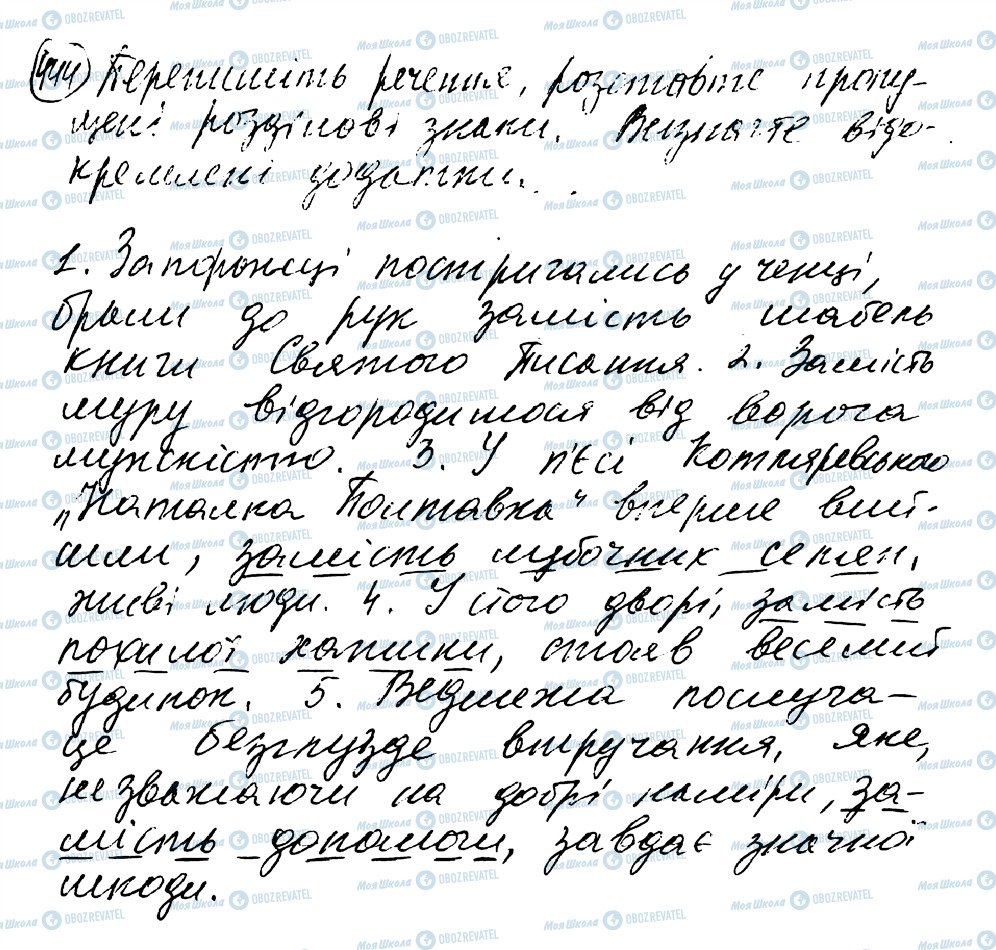 444 Перепишіть речення, розставте пропу-
щені розділові знаки. Визначте відо-
кремлені додатки.
1. Запорожці постригались у ченці,
брали до рук замість шабель
книги Святого Писання. 2. Замість
муру відгородимося від ворога
мужністю. 3. У п'єсі Котляревського
„Наталка Полтавка" вперше вий-
шли, замість лубочних селян,
живі люди. 4. У його дворі, замість
похилої хатинки, стояв веселий
будинок. 5. Ведмежа послуга -
це безглузде втручання, яке,
незважаючи на добрі наміри, за-
мість допомоги, завдає значної
шкоди.